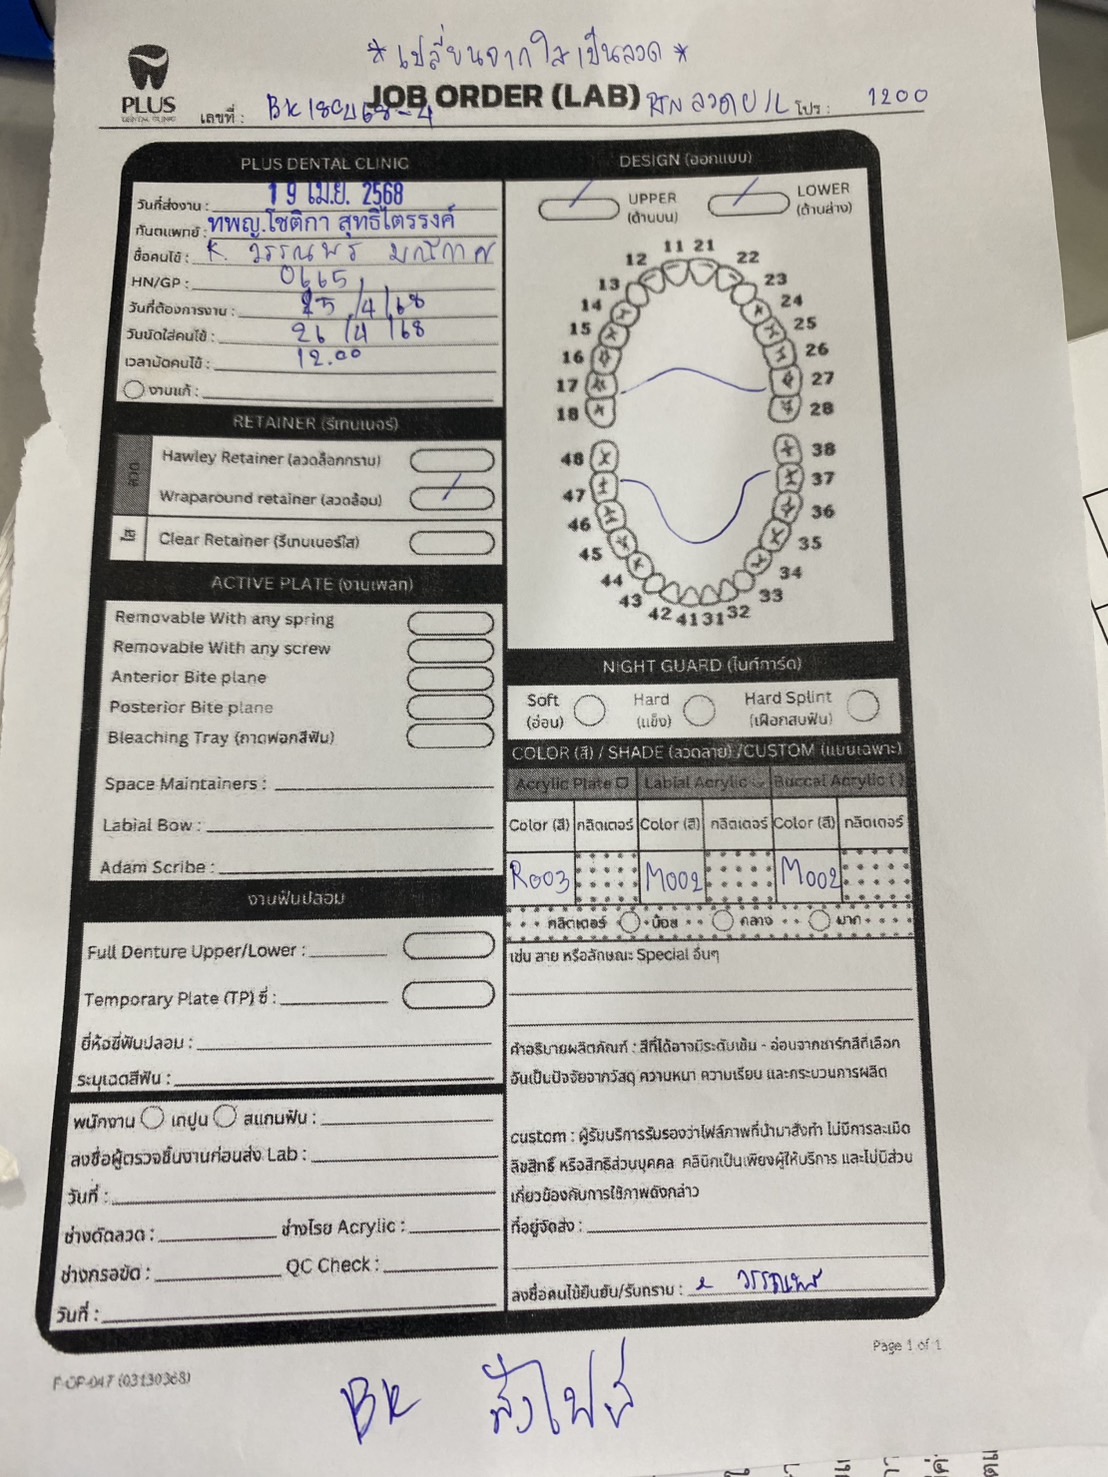 *เปลี่ยนจากใสเป็นลวด*
PLUS
DENTAL CLINIC
JOB ORDER (LAB)
เลขที่ : BK180468-4
RTN ลวด U/L โปร : 1200
PLUS DENTAL CLINIC
วันที่ส่งงาน : 19 เม.ย. 2568
ทันตแพทย์ : ทพญ.โชติกา สุทธิไตรรงค์
ชื่อคนไข้ : K. วรรณพร
HN/GP : 0665
วันที่ต้องการงาน : 25/4/68
วันนัดใส่คนไข้ : 26/4/68
เวลานัดคนไข้ : 12.00
งานแก้ :
RETAINER (รีเทนเนอร์)
ลวด
Hawley Retainer (ลวดล็อกกราม)
Wraparound retainer (ลวดล้อม)
ใส
Clear Retainer (รีเทนเนอร์ใส)
ACTIVE PLATE (งานเพลท)
Removable With any spring
Removable With any screw
Anterior Bite plane
Posterior Bite plane
Bleaching Tray (ถาดฟอกสีฟัน)
Space Maintainers :
Labial Bow :
Adam Scribe :
งานฟันปลอม
Full Denture Upper/Lower :
Temporary Plate (TP) ซี่ :
ยี่ห้อซี่ฟันปลอม :
ระบุเฉดสีฟัน :
พนักงาน เทปูน สแกนฟัน :
ลงชื่อผู้ตรวจชิ้นงานก่อนส่ง Lab :
วันที่ :
ช่างดัดลวด : ช่างโรย Acrylic :
ช่างกรอขัด : QC Check :
วันที่ :
DESIGN (ออกแบบ)
UPPER (ด้านบน)
LOWER (ด้านล่าง)
11 21
12 22
13 23
14 24
15 25
16 26
17 27
18 28
48 38
47 37
46 36
45 35
44 34
43 33
42 41 31 32
NIGHT GUARD (ไนท์การ์ด)
Soft (อ่อน)
Hard (แข็ง)
Hard Splint (เฝือกสบฟัน)
COLOR (สี) / SHADE (ลวดลาย) /CUSTOM (แบบเฉพาะ)
Acrylic Plate Labial Acrylic Buccal Acrylic ( )
Color (สี) กลิตเตอร์ Color (สี) กลิตเตอร์ Color (สี) กลิตเตอร์
R003 M002 M002
กลิตเตอร์ น้อย กลาง มาก
เช่น ลาย หรือลักษณะ Special อื่นๆ
คำอธิบายผลิตภัณฑ์ : สีที่ได้อาจมีระดับเข้ม - อ่อนจากชาร์ทสีที่เลือก
อันเป็นปัจจัยจากวัสดุ ความหนา ความเรียบ และกระบวนการผลิต
custom : ผู้รับบริการรับรองว่าไฟล์ภาพที่นำมาสั่งทำ ไม่มีการละเมิด
ลิขสิทธิ์ หรือสิทธิส่วนบุคคล คลินิกเป็นเพียงผู้ให้บริการ และไม่มีส่วน
เกี่ยวข้องกับการใช้ภาพดังกล่าว
ที่อยู่จัดส่ง :
ลงชื่อคนไข้ยืนยัน/รับทราบ : วรรณพร
Page 1 of 1
F-OP-047 (03130368)
BK ส่งไฟล์